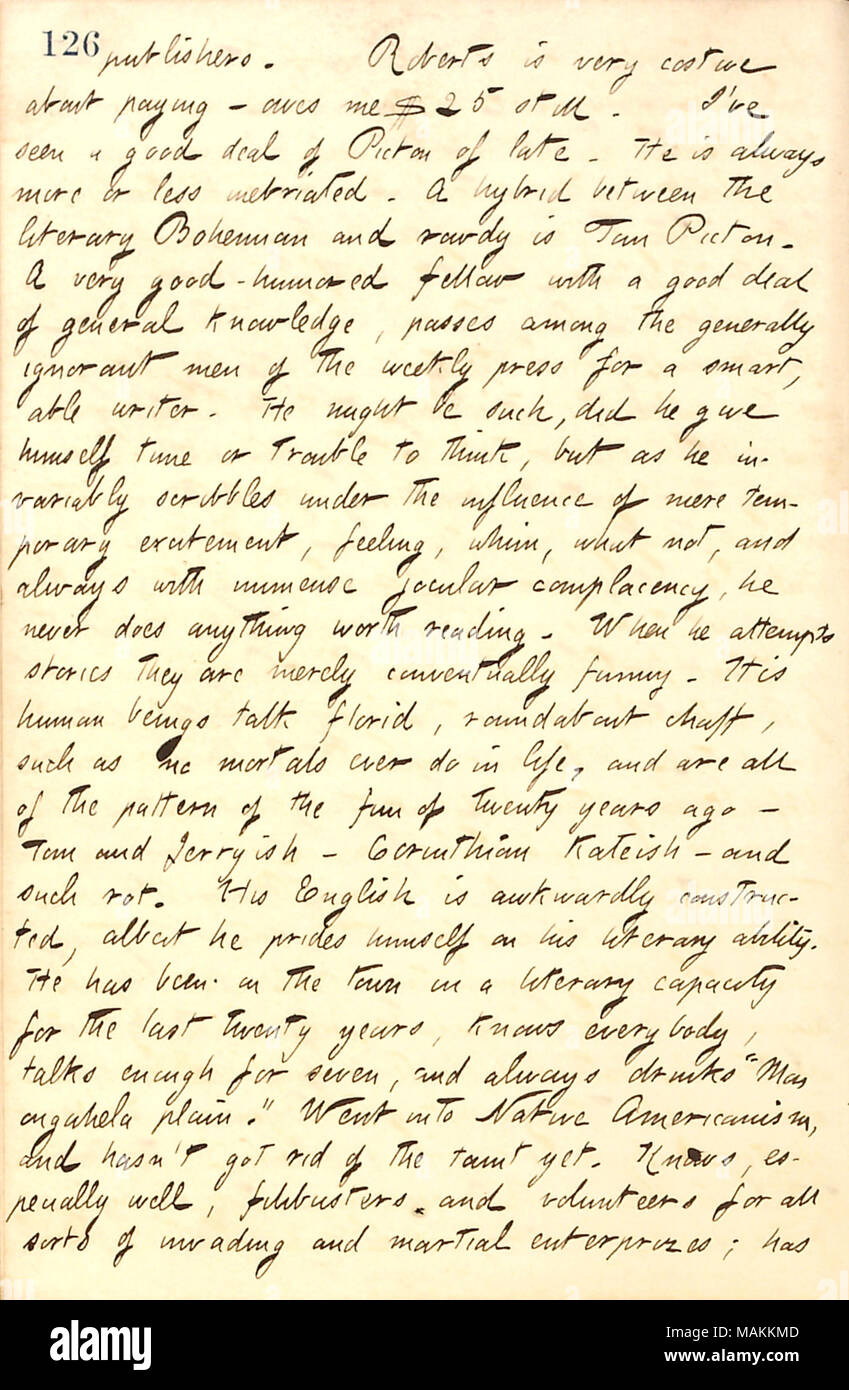 126
publishers. Roberts is very costive
about paying - owes me $25 still. I've
seen a good deal of Picton of late. He is always
more or less inebriated. A hybrid between the
literary Bohemian and rowdy is Tom Picton.
A very good-humored fellow with a good deal
of general knowledge, passes among the generally
ignorant men of the weekly press for a smart,
able writer. He might be such, did he give
himself time or trouble to think, but as he in-
variably scribbles under the influence of mere tem-
porary excitement, feeling, whim, what not, and
always with immense jocular complacency, he
never does anything worth reading. When he attempts
stories they are merely conventually funny. His
human beings talk florid, roundabout chaff,
such as no mortals ever do in life, and are all
of the pattern of the fun of twenty years ago -
Tom and Jerryish - Corinthian Kateish - and
such rot. His English is awkwardly construc-
ted, albeit he prides himself on his literary ability.
He has been on the town in a literary capacity
for the last twenty years, knows everybody,
talks enough for seven, and always drinks "Mon
ongahela plain." Went into Native Americanism,
and hasn't got rid of the taint yet. Knows, es-
pecially well, filibusters and volunteers for all
sorts of invading and martial enterprizes; has
alamy
Image ID: MAKKMD
www.alamy.com